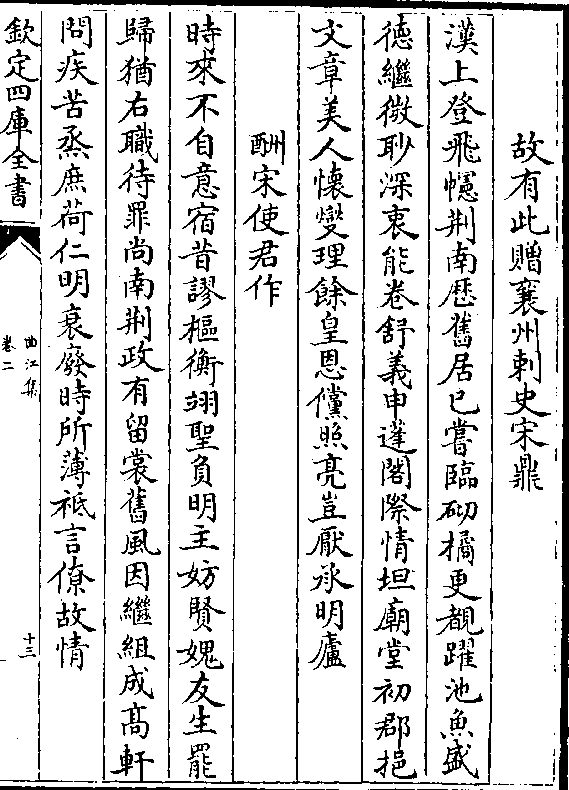 故有此贈襄州刺史宋鼎
漢上登飛幰荆南歴舊居已嘗臨砌橘更覩躍池魚盛
徳繼微眇深衷能卷舒義申蓬閣際情坦廟堂初郡挹
文章美人懷爕理餘皇恩儻照亮豈厭承明廬
酬宋使君作
時來不自意宿昔謬樞衡翊聖負明主妨賢媿友生罷
歸猶右職待罪尚南荆政有留棠舊風因繼組成髙軒
問疾苦烝庶荷仁明衰廢時所薄祗言僚故情
欽定四庫全書
曲江集
卷二
十三